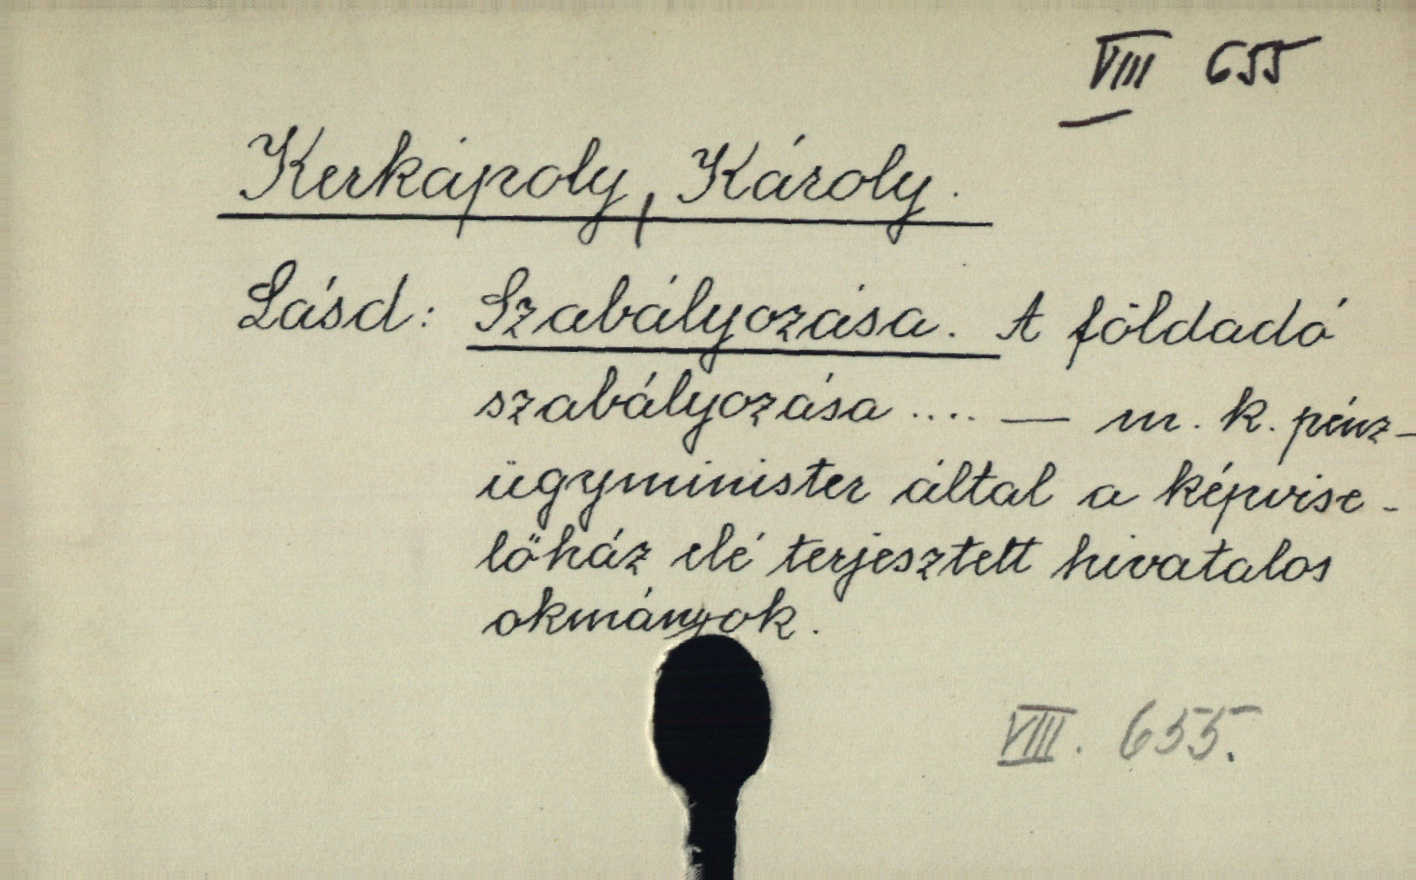 VIII 655
Kerkápoly, Károly.
Lásd: Szabályozása. A földadó
szabályozása .... — m. k. pénz-
ügyminister által a képvise-
lőház elé terjesztett hivatalos
okmányok.
VIII. 655.